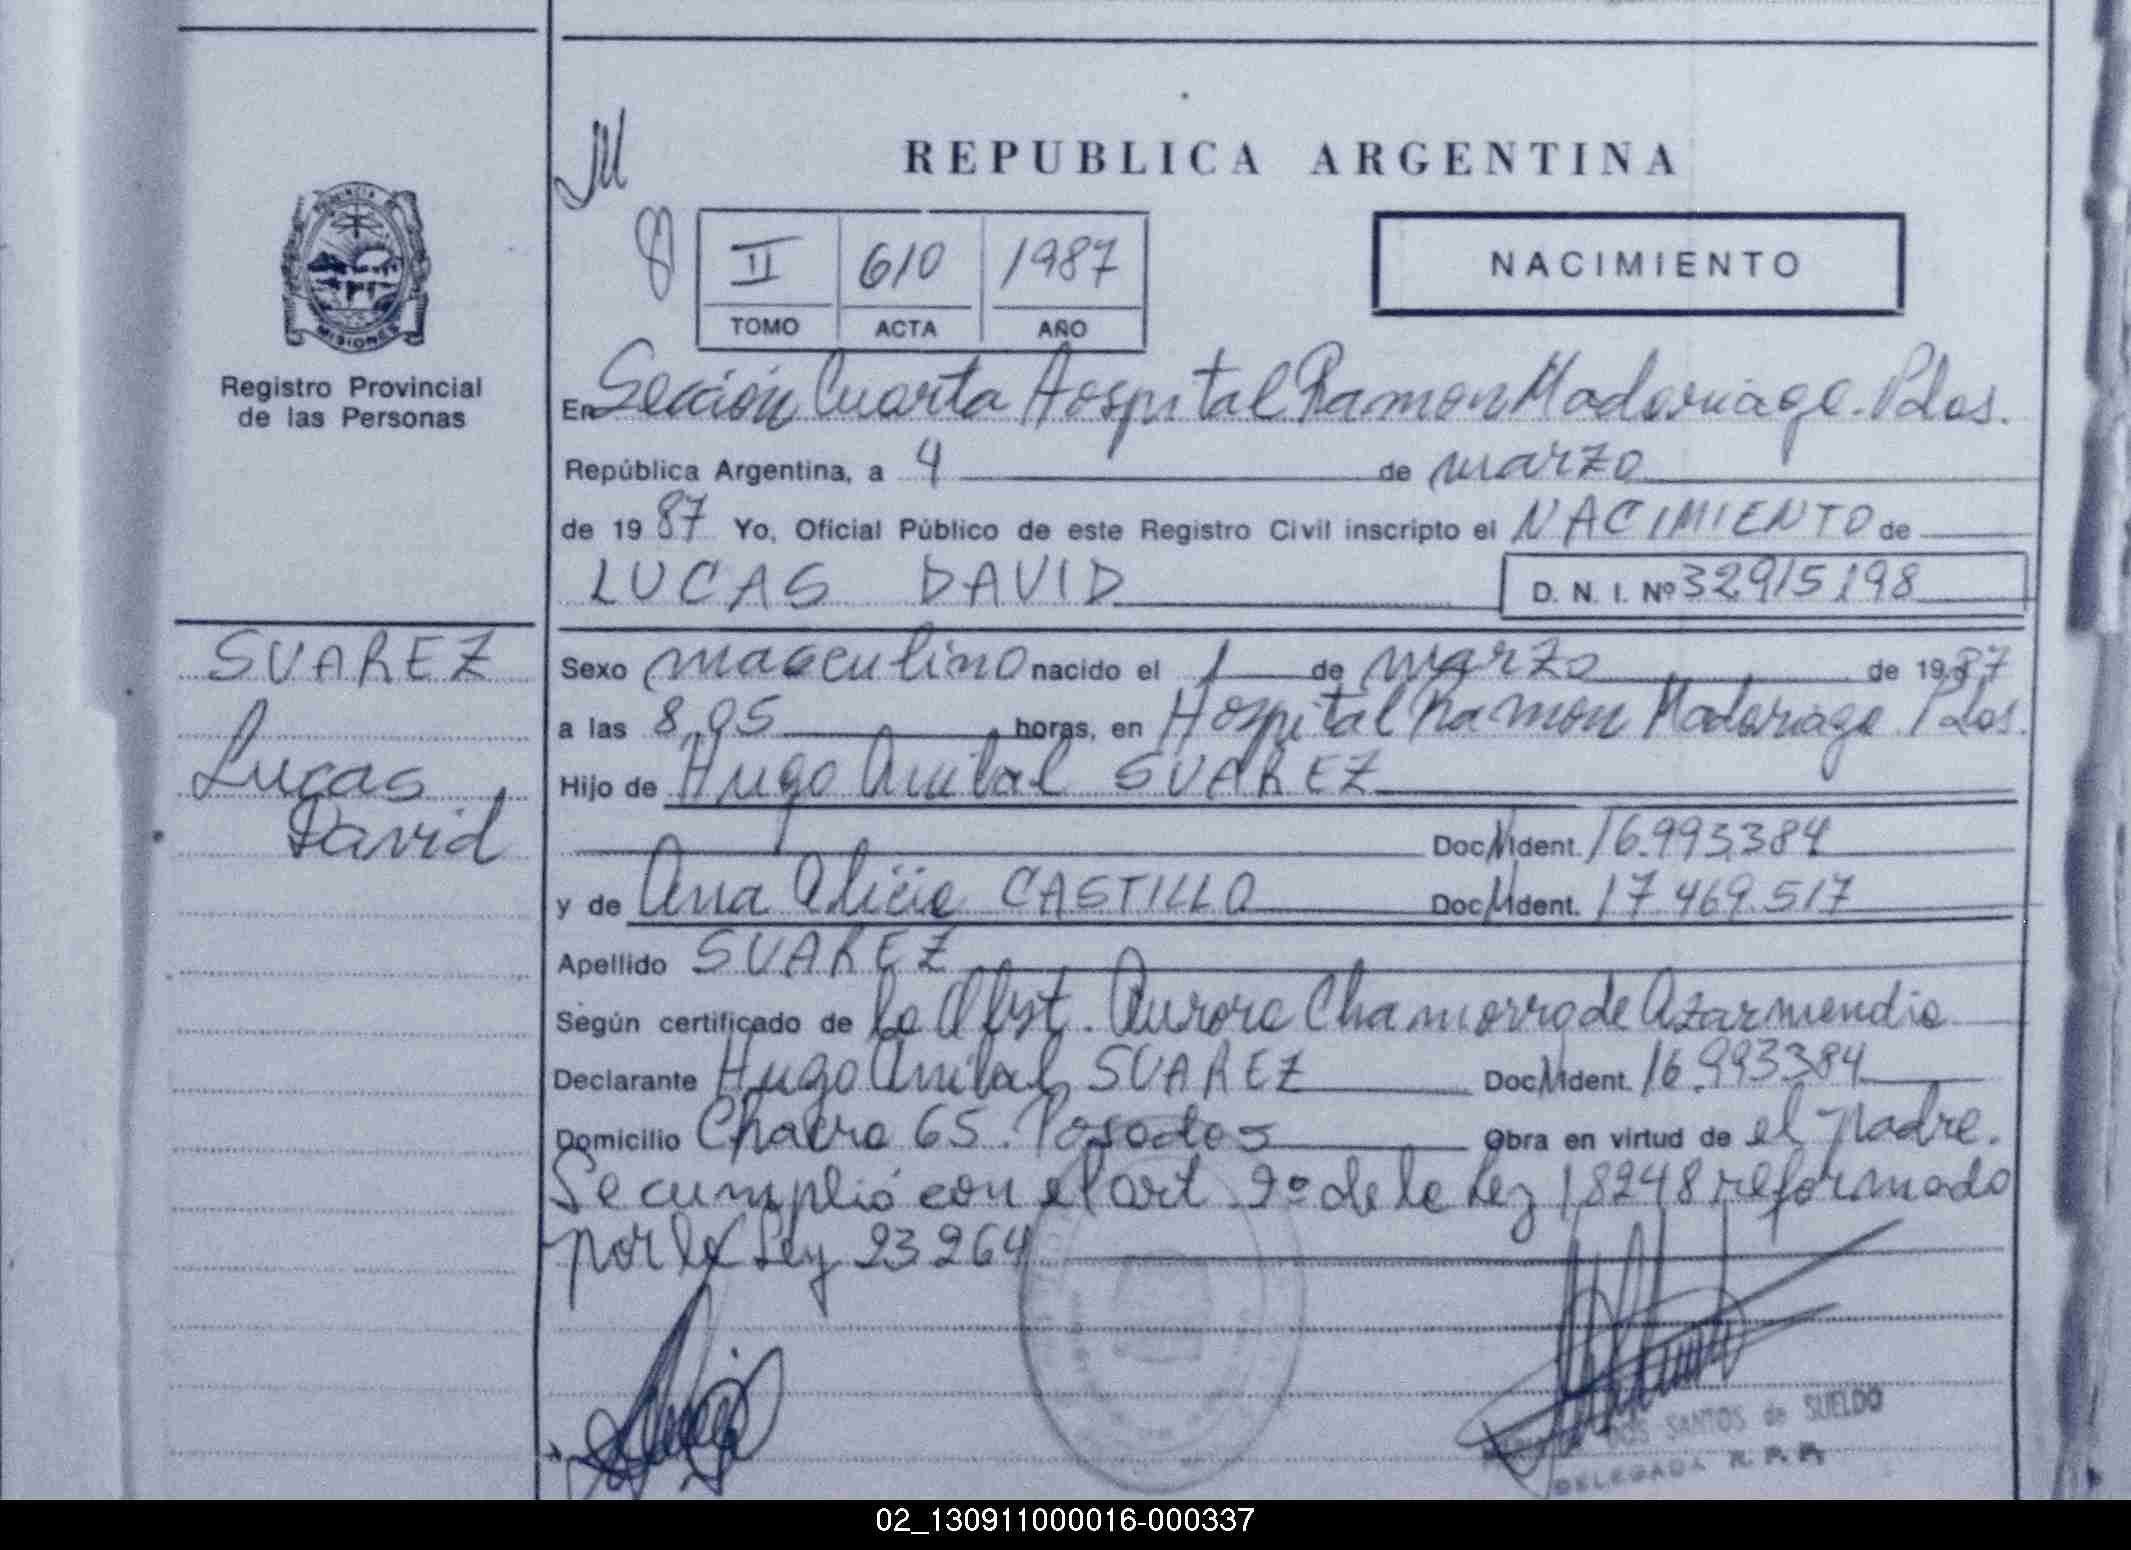 REPUBLICA ARGENTINA
PROVINCIA
MISIONES
Registro Provincial
de las Personas
II 610 1987
TOMO ACTA AÑO
NACIMIENTO
En Sección Cuarta Hospital Ramon Madariaga. Pdas.
República Argentina, a 4 de marzo
de 1987 Yo, Oficial Público de este Registro Civil inscripto el NACIMIENTO de
LUCAS DAVID D. N. I. Nº 32915198
SUAREZ
Lucas
David
Sexo masculino nacido el 1 de marzo de 1987
a las 8,05 horas, en Hospital Ramon Madariaga Pdas.
Hijo de Hugo Anibal SUAREZ
Doc. Ident. 16.993.384
y de Ana Alicia CASTILLO Doc. Ident. 17.469.517
Apellido SUAREZ
Según certificado de la Obst. Aurora Chamorro de Azarmendia
Declarante Hugo Anibal SUAREZ Doc. Ident. 16.993384
Domicilio Chacra 65. Posadas Obra en virtud de el padre.
Se cumplió con el art. 2º de la Ley 18248 reformado
por la Ley 23264
DOS SANTOS de SUELDO
DELEGADA R. P. P.
02_130911000016-000337